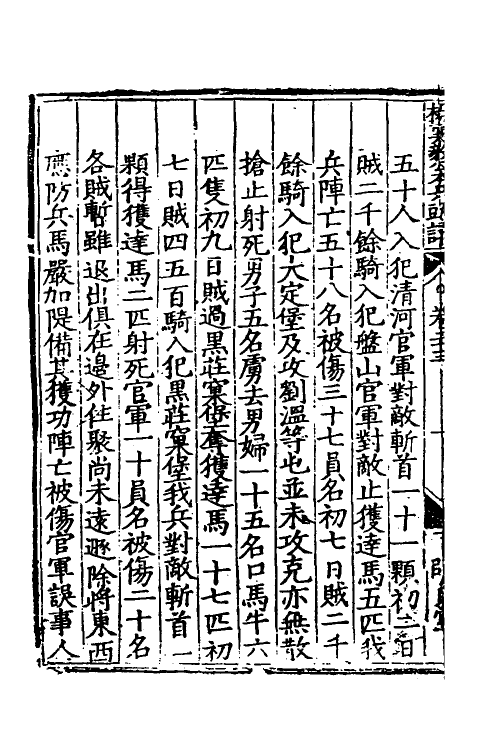 五十人入犯清河官軍對敵斬首一十一顆初二日
賊二千餘騎入犯盤山官軍對敵止獲達馬五匹我
兵陣亡五十八名被傷三十七員名初七日賊二千
餘騎入犯大定堡及攻劉溫等屯並未攻克亦無散
搶止射死男子五名虜去男婦一十五名口馬牛六
匹隻初九日賊過黑莊窠堡奪獲達馬一十七匹初
七日賊四五百騎入犯黑莊窠堡我兵對敵斬首一
顆得獲達馬二匹射死官軍一十員名被傷二十名
各賊暫雖退出俱在邊外住聚尚未遠遯除將東西
應防兵馬嚴加隄備其獲功陣亡被傷官軍誤事人